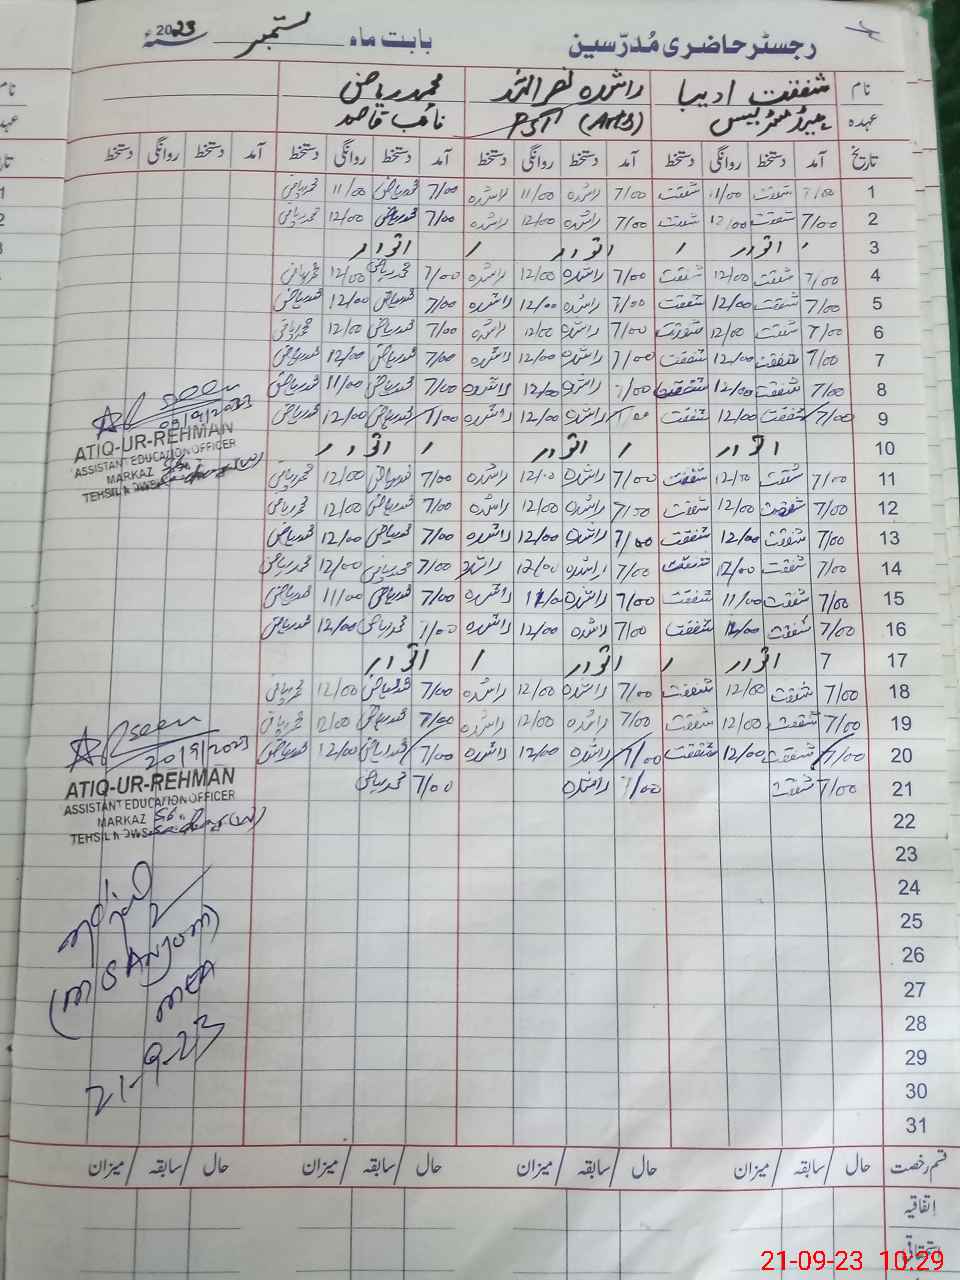 رجسٹر حاضری مُدرّسین بابت ماہ ستمبر سنہ 2023ء
نام شفقت ادیبا راشدہ نصر اللہ محمد ریاض
عہدہ ہیڈ مسٹریس PST (Arts) نائب قاصد
تاریخ آمد دستخط روانگی دستخط آمد دستخط روانگی دستخط آمد دستخط روانگی دستخط آمد دستخط روانگی دستخط
1 7/00 شفقت 11/00 شفقت 7/00 راشدہ 11/00 راشدہ 7/00 محمد ریاض 11/00 محمد ریاض
2 7/00 شفقت 12/00 شفقت 7/00 راشدہ 12/00 راشدہ 7/00 محمد ریاض 12/00 محمد ریاض
3 / اتوار / اتوار / اتوار
4 7/00 شفقت 12/00 شفقت 7/00 راشدہ 12/00 راشدہ 7/00 محمد ریاض 12/00 محمد ریاض
5 7/00 شفقت 12/00 شفقت 7/00 راشدہ 12/00 راشدہ 7/00 محمد ریاض 12/00 محمد ریاض
6 7/00 شفقت 12/00 شفقت 7/00 راشدہ 12/00 راشدہ 7/00 محمد ریاض 12/00 محمد ریاض
7 7/00 شفقت 12/00 شفقت 7/00 راشدہ 12/00 راشدہ 7/00 محمد ریاض 12/00 محمد ریاض
8 7/00 شفقت 12/00 شفقت 7/00 راشدہ 12/00 راشدہ 7/00 محمد ریاض 11/00 محمد ریاض
9 7/00 شفقت 12/00 شفقت 7/00 راشدہ 12/00 راشدہ 7/00 محمد ریاض 12/00 محمد ریاض
10 اتوار / اتوار / اتوار /
11 7/00 شفقت 12/00 شفقت 7/00 راشدہ 12/00 راشدہ 7/00 محمد ریاض 12/00 محمد ریاض
12 7/00 شفقت 12/00 شفقت 7/00 راشدہ 12/00 راشدہ 7/00 محمد ریاض 12/00 محمد ریاض
13 7/00 شفقت 12/00 شفقت 7/00 راشدہ 12/00 راشدہ 7/00 محمد ریاض 12/00 محمد ریاض
14 7/00 شفقت 12/00 شفقت 7/00 راشدہ 12/00 راشدہ 7/00 محمد ریاض 12/00 محمد ریاض
15 7/00 شفقت 11/00 شفقت 7/00 راشدہ 11/00 راشدہ 7/00 محمد ریاض 11/00 محمد ریاض
16 7/00 شفقت 12/00 شفقت 7/00 راشدہ 12/00 راشدہ 7/00 محمد ریاض 12/00 محمد ریاض
17 7 اتوار / اتوار / اتوار
18 7/00 شفقت 12/00 شفقت 7/00 راشدہ 12/00 راشدہ 7/00 محمد ریاض 12/00 محمد ریاض
19 7/00 شفقت 12/00 شفقت 7/00 راشدہ 12/00 راشدہ 7/00 محمد ریاض 12/00 محمد ریاض
20 7/00 شفقت 12/00 شفقت 7/00 راشدہ 12/00 راشدہ 7/00 محمد ریاض 12/00 محمد ریاض
21 7/00 شفقت 7/00 راشدہ 7/00 محمد ریاض
22
23
24
25
26
27
28
29
30
31
09/9/2023
ATIQ-UR-REHMAN
ASSISTANT EDUCATION OFFICER
MARKAZ
TEHSIL
20/9/2023
ATIQ-UR-REHMAN
ASSISTANT EDUCATION OFFICER
MARKAZ
TEHSIL
(M S ANJUM)
MEA
21-9-23
قسم رخصت حال / سابقہ / میزان حال / سابقہ / میزان حال / سابقہ / میزان حال / سابقہ / میزان
اتفاقیہ
استحقاقی
21-09-23 10:29